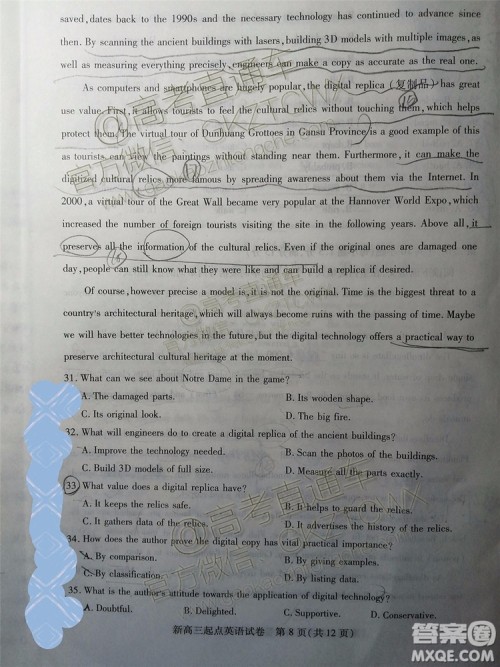 saved, dates back to the 1990s and the necessary technology has continued to advance since
then. By scanning the ancient buildings with lasers, building 3D models with multiple images, as
well as measuring everything precisely, engineers can make a copy as accurate as the real one.
As computers and smartphones are hugely popular, the digital replica (复制品) has great
use value. First, it allows tourists to feel the cultural relics without touching them, which helps
protect them. The virtual tour of Dunhuang Grottoes in Gansu Province is a good example of this
as tourists can view the paintings without standing near them. Furthermore, it can make the
digitized cultural relics more famous by spreading awareness about them via the Internet. In
2000, a virtual tour of the Great Wall became very popular at the Hannover World Expo, which
increased the number of foreign tourists visiting the site in the following years. Above all, it
preserves all the information of the cultural relics. Even if the original ones are damaged one
day, people can still know what they were like and can build a replica if desired.
Of course, however precise a model is, it is not the original. Time is the biggest threat to a
country's architectural heritage, which will always become ruins with the passing of time. Maybe
we will have better technologies in the future, but the digital technology offers a practical way to
preserve architectural cultural heritage at the moment.
31. What can we see about Notre Dame in the game?
A. The damaged parts. B. Its wooden shape.
C. Its original look. D. The big fire.
32. What will engineers do to create a digital replica of the ancient buildings?
A. Improve the technology needed. B. Scan the photos of the buildings.
C. Build 3D models of full size. D. Measure all the parts exactly.
33. What value does a digital replica have?
A. It keeps the relics safe. B. It helps to guard the relics.
C. It gathers data of the relics. D. It advertises the history of the relics.
34. How does the author prove the digital copy has vital practical importance?
A. By comparison. B. By giving examples.
C. By classification. D. By listing data.
35. What is the author's attitude towards the application of digital technology?
A. Doubtful. B. Delighted. C. Supportive. D. Conservative.
新高三起点英语试卷 第 8 页(共 12 页)
答案圈
MXQE.COM